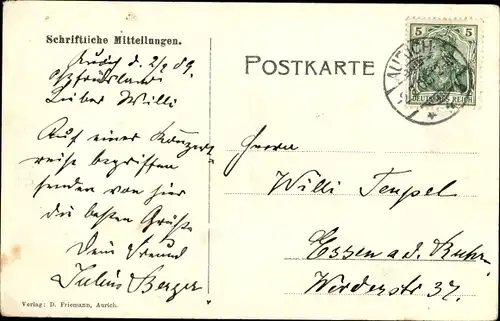 Schriftliche Mitteilungen.
POSTKARTE
5 5
DEUTSCHES REICH
AURICH
Aurich d. 2/9 09.
Ostfriesland
Lieber Willi
Auf einer Konzert-
reise begriffen
senden von hier
die besten Grüße
Dein Freund
Julius Berger
Herrn
Willi Tempel
Essen a. d. Ruhr
Werderstr 37.
Verlag: D. Friemann, Aurich.